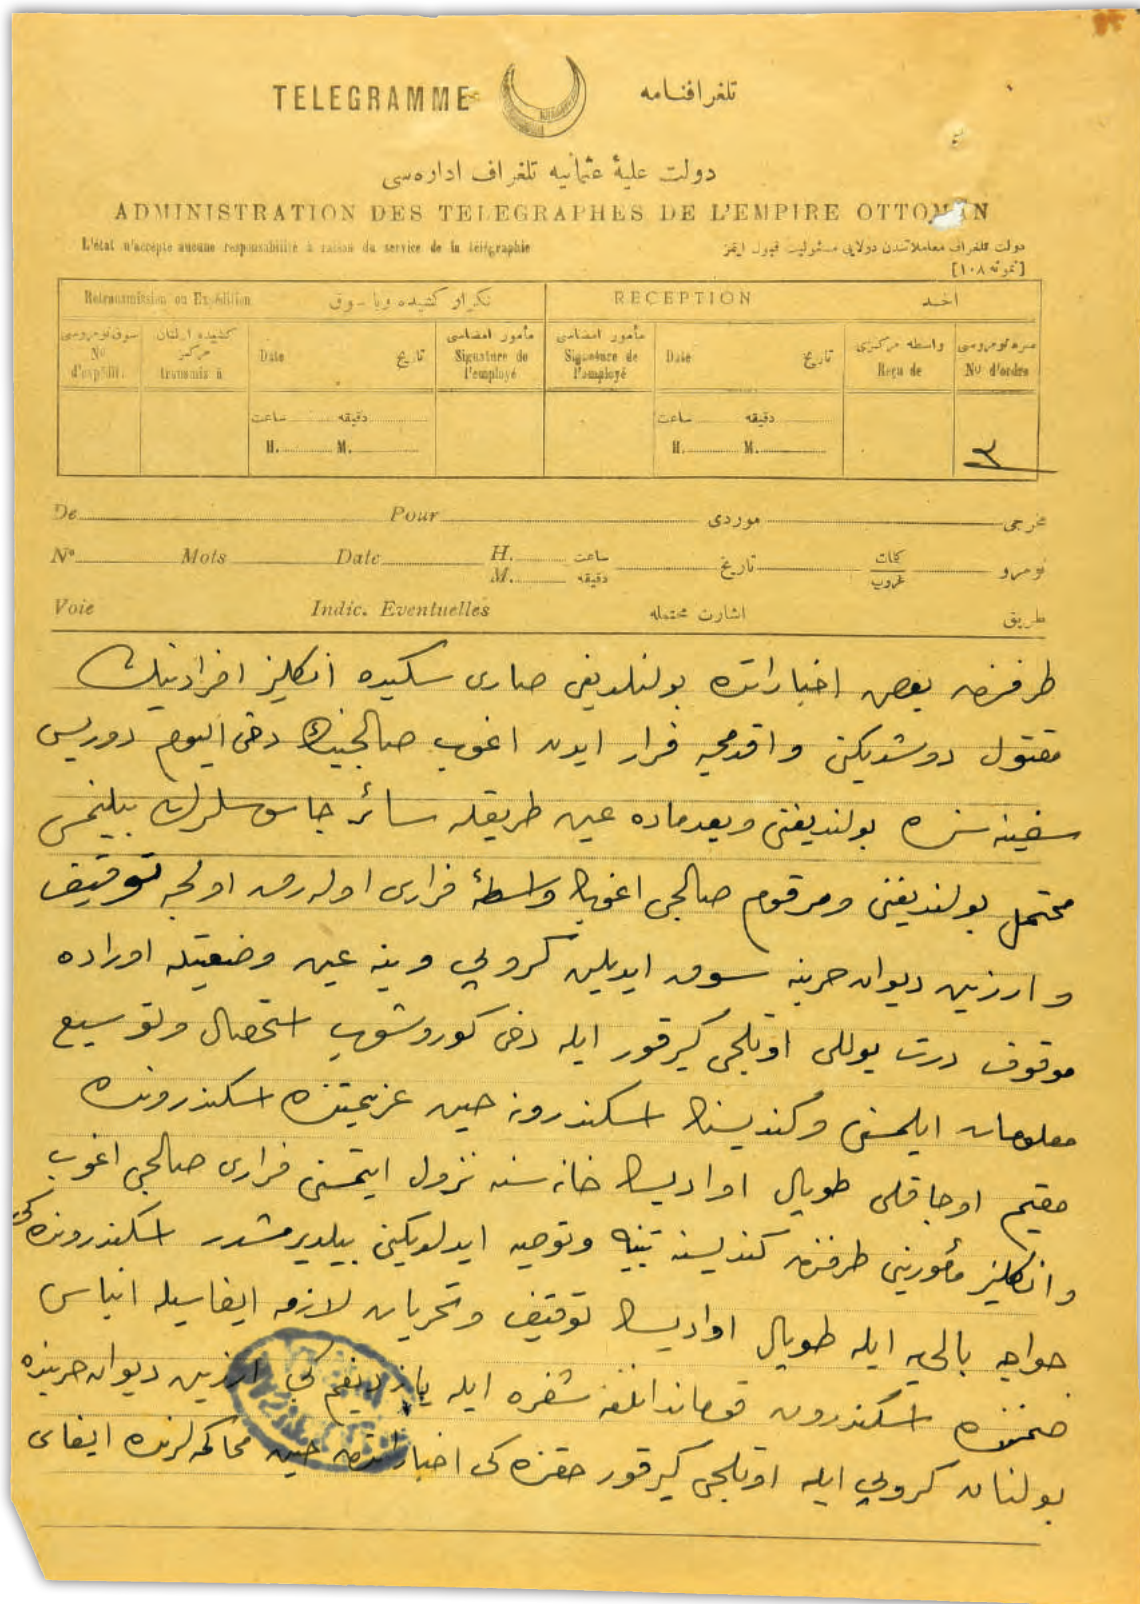 TELEGRAMME
تلغرافنامه
دولت عليهٔ عثمانيه تلغراف اداره‌سى
ADMINISTRATION DES TELEGRAPHES DE L'EMPIRE OTTOMAN
L'état n'accepte aucune responsabilité à raison du service de la télégraphie
دولت تلغراف معاملاتندن دولايى مسئوليت قبول ايتمز
[نمونه ١٠٨]
Retransmission ou Expédition
تكرار كشيده ويا سوق
RECEPTION
اخذ
سوق نومروسى
Nº
d'expédit.
كشيده اولنان
مركز
transmis à
Date تاريخ
مأمور امضاسى
Signature de
l'employé
مأمور امضاسى
Signature de
l'employé
Date تاريخ
واسطه مركزى
Reçu de
صره نومروسى
Nº d'ordre
ساعت دقيقه
H. M.
ساعت دقيقه
H. M.
٣
De Pour موردى مخرجى
Nº Mots Date H. ساعت تاريخ كلمات نومرو
M. دقيقه غروب
Voie Indic. Eventuelles اشارت محتمله طريق
طرفنه بعض اخباراتده بولنلديغى صارى سكيده انكليز افرادينك
مقتول دوشديكنى و اقدمجه فرار ايدن اغوب صالجينك دخى اليوم دوريس
سفينه‌سنده بولنديغنى وبعدماده عين طريقله سائر جاسوسلرك بيلنمسى
محتمل بولنديغنى ومرقوم صالجى اغوبك واسطهٔ فرارى اوله‌رق اولجه توقيف
و ارزين ديوان حربنه سوق ايديلن كروبى وينه عين وضعيتله اوراده
موقوف درت يوللى اوتلجى كيرقور ايله دخى كوروشوب استحصال وتوسيع
معلومات ايلمسنى وكنديسنك اسكندرونه حين عزيمتنده اسكندرونده
مقيم اوجاقلى طوپال اواديسك خانه‌سنه نزول ايتمسنى فرارى صالجى اغوب
و انكليز مأمورينى طرفندن كنديسنه تنبيه وتوصيه ايدلديكنى بيلديرمشدر اسكندرونده كى
خواجه ايله طوپال اواديسك توقيف وتحريات لازمه ايفاسيله انباسى
ضمننده اسكندرون قومانداننغه شفره ايله يازديغم كى ارزين ديوان حربنده
بولنان كروبى ايله اوتلجى كيرقور حقنده كى اخباراتده حين محاكمه‌لرنده ايفاى